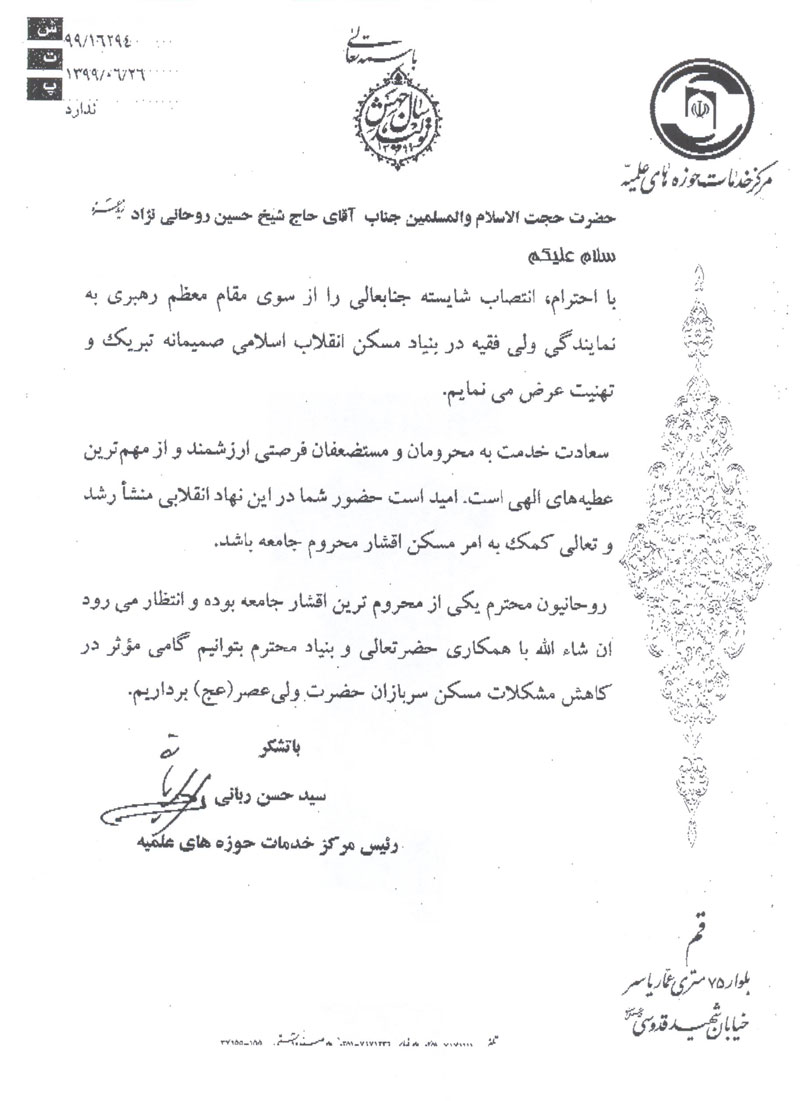 باسمه تعالی
ش ۹۹/۱۶۲۹۴۰
ت ۱۳۹۹/۰۶/۲۶
پ ندارد
سال جهش تولید
۱۳۹۹
مرکز خدمات حوزه های علمیه
حضرت حجت الاسلام والمسلمین جناب آقای حاج شیخ حسین روحانی نژاد زید عزه
سلام علیکم
با احترام، انتصاب شایسته جنابعالی را از سوی مقام معظم رهبری به
نمایندگی ولی فقیه در بنیاد مسکن انقلاب اسلامی صمیمانه تبریک و
تهنیت عرض می نمایم.
سعادت خدمت به محرومان و مستضعفان فرصتی ارزشمند و از مهم‌ترین
عطیه‌های الهی است. امید است حضور شما در این نهاد انقلابی منشأ رشد
و تعالی کمک به امر مسکن اقشار محروم جامعه باشد.
روحانیون محترم یکی از محروم ترین اقشار جامعه بوده و انتظار می رود
ان شاء الله با همکاری حضرتعالی و بنیاد محترم بتوانیم گامی مؤثر در
کاهش مشکلات مسکن سربازان حضرت ولی‌عصر(عج) برداریم.
باتشکر
سید حسن ربانی
رئیس مرکز خدمات حوزه های علمیه
قم
بلوار ۷۵ متری عمار یاسر
خیابان شهید قدوسی